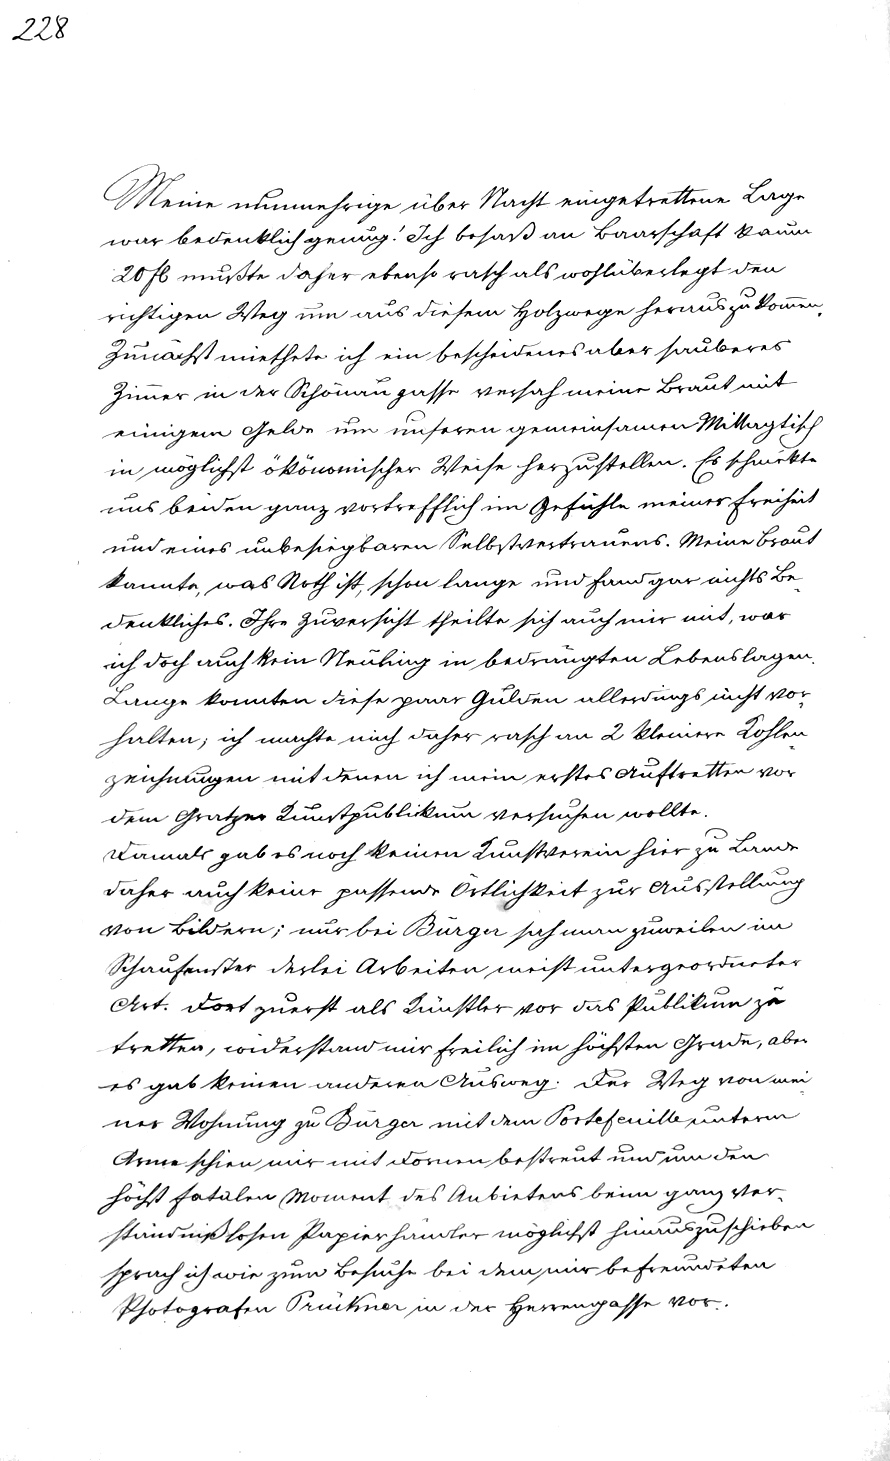 228
Meine nunmehrige über Nacht eingetrettene Lage
war bedenklich genug! Ich besaß an Baarschaft kaum
20 fl mußte daher ebenso rasch als wohlüberlegt den
richtigen Weg um aus diesem Holzwege herauszukom̄en.
Zunächst miethete ich ein bescheidenes aber sauberes
Zim̄er in der Schönaugasse versah meine Braut mit
einigem Gelde um unseren gemeinsamen Mittagtisch
in möglichst ökonomischer Weise herzustellen. Es schmekte
uns beiden ganz vortrefflich im Gefühle meiner Freiheit
und eines unbesiegbaren Selbstvertrauens. Meine Braut
kannte, was Noth ist, schon lange und fand gar nichts Be-
denkliches. Ihre Zuversicht theilte sich auch mir mit, war
ich doch auch kein Neuling in bedrängten Lebenslagen.
Lange konnten diese paar Gulden allerdings nicht vor-
halten; ich machte mich daher rasch an 2 kleinere Kohlen-
zeichnungen mit denen ich mein erstes Auftretten vor
dem Gratzer Kunstpublikum versuchen wollte.
Damals gab es noch keinen Kunstverein hier zu Lande
daher auch keine passende Örtlichkeit zur Ausstellung
von Bildern; nur bei Bürger sah man zuweilen im
Schaufenster derlei Arbeiten meist untergeordneter
Art. Dort zuerst als Künstler vor das Publikum zu
tretten, widerstand mir freilich im höchsten Grade, aber
es gab keinen anderen Ausweg. Der Weg von mei-
ner Wohnung zu Bürger mit dem Portefeuille unterm
Arme schien mir mit Dornen bestreut und um den
höchst fatalen Moment des Anbietens beim ganz ver-
ständnißlosen Papierhändler möglichst hinauszuschieben
sprach ich wie zum Besuche bei dem mir befreundeten
Photografen Prükner in der Herrengasse vor.